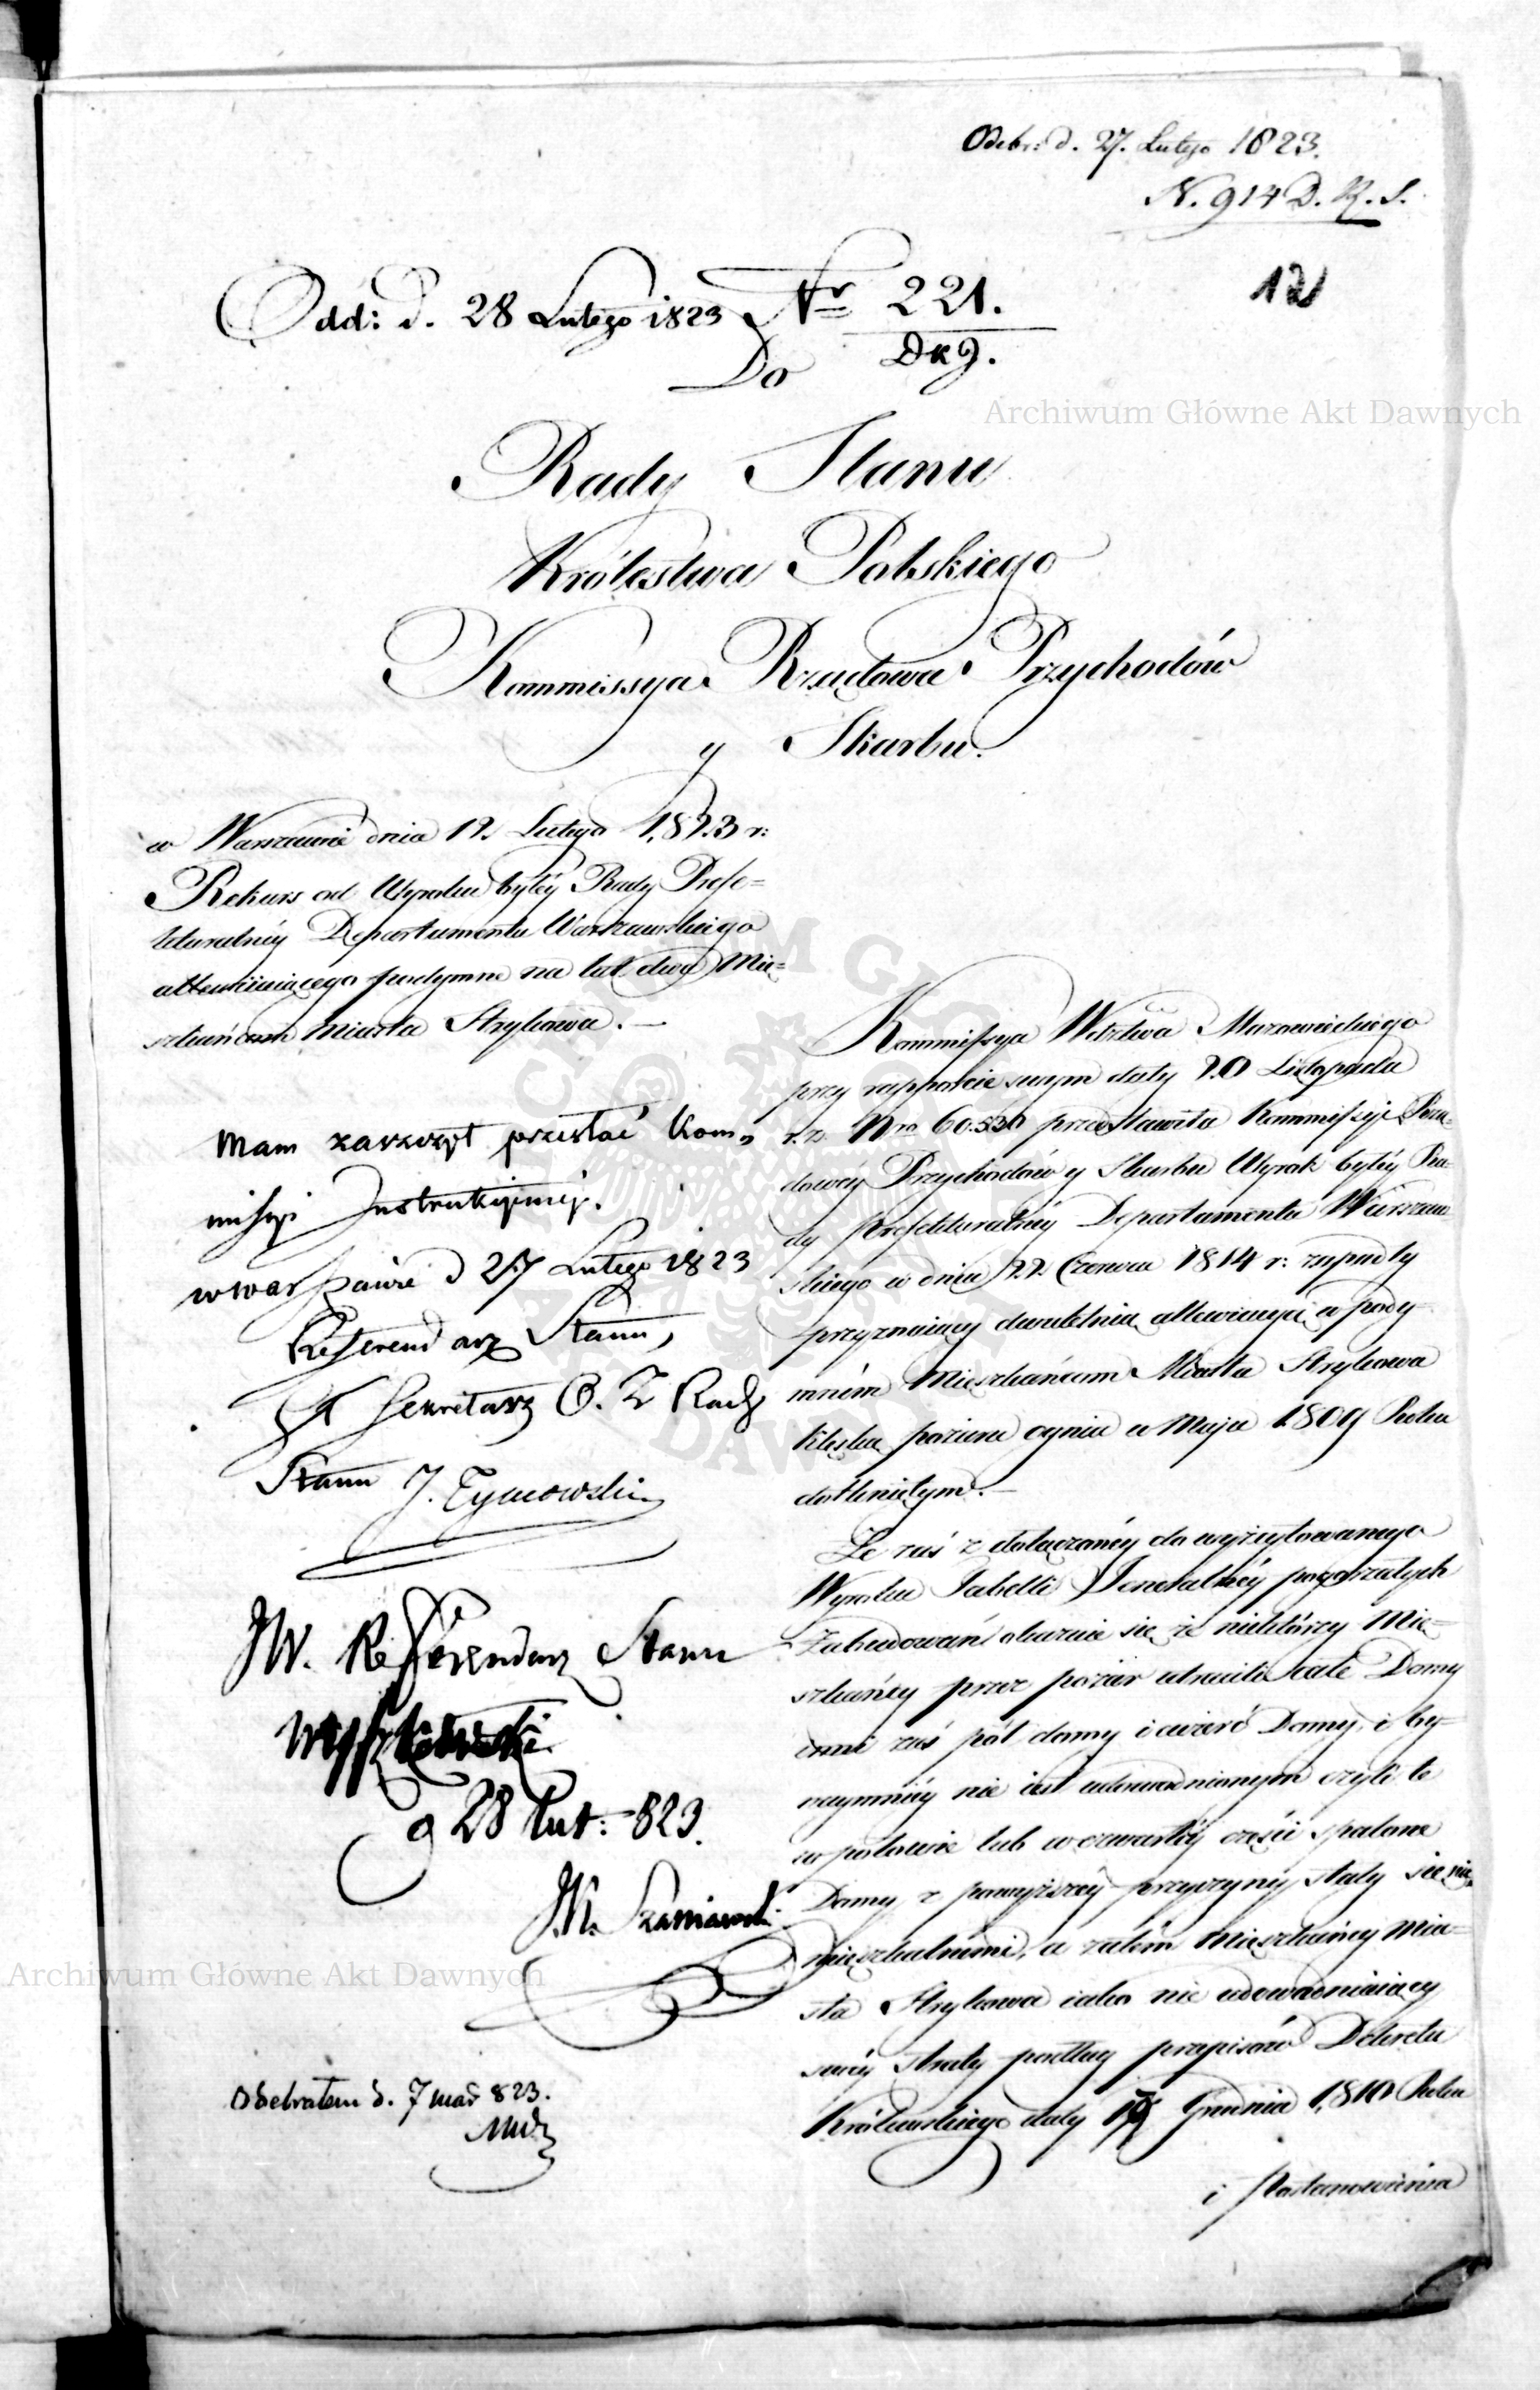 Odebr: d. 27. Lutego 1823.
N. 914 D. R. S.
12
Odd: d. 28 Lutego 1823 Nr 221.
DKJ.
Do
Rady Stanu
Królestwa Polskiego
Kommissya Rządowa Przychodów
y Skarbu.
w Warszawie dnia 12 Lutego 1,823 r:
Rekurs od Wyroku byłéy Rady Prefe=
kturalnéy Departamentu Warszawskiego
allewiiuiącego podymne na lat dwa Mie=
szkańcom Miasta Strykowa. —
Mam zaszczyt przesłać Kom=
missyi Instrukcyjnej.
w Warszawie d 27 Lutego 1823
Referendarz Stanu,
Sekretarz O. Z Rady
Stanu J. Tymowski
JW. Referendarz Stanu
d 28 Lut: 823.
J.K. Szaniawski
Odebrałem d. 7 mar 823.
Kommissya Wdztwa Mazowieckiego
przy rapporcie swym daty 20 Listopada
r. z. Nro 60.530 przedstawiła Kommissyi Rzą=
dowéy Przychodów y Skarbu Wyrok byłéy Ra=
dy Prefekturalnéy Departamentu Warszaw=
skiego w dniu 22 Czerwca 1814 r: zapadły
przyznaiący dwuletnią allewiacyą w pody=
mném Mieszkańcom Miasta Strykowa
klęską pożaru ognia w Maju 1809 Roku
dotkniętym. —
Że zaś z dołączonéy do wyżcytowanego
Wyroku Tabelli Jeneralnéy pogorzałych
Zabudowań okazuie się że niektórzy Mie=
szkańcy przez pożar utracili całe Domy
inni zaś pół domy i ćwierć Domy, i by=
naymniéy nie iest udowodnionym czyli te
w połowie lub w czwartéy części spalone
Domy z powyższéy przyczyny stały się nie=
mieszkalnemi, a zatém Mieszkańcy Mia=
sta Strykowa iako nie udowadniaiący
swéy straty podług przepisów Dekretu
Królewskiego daty Grudnia 1,810 Roku
i Postanowienia